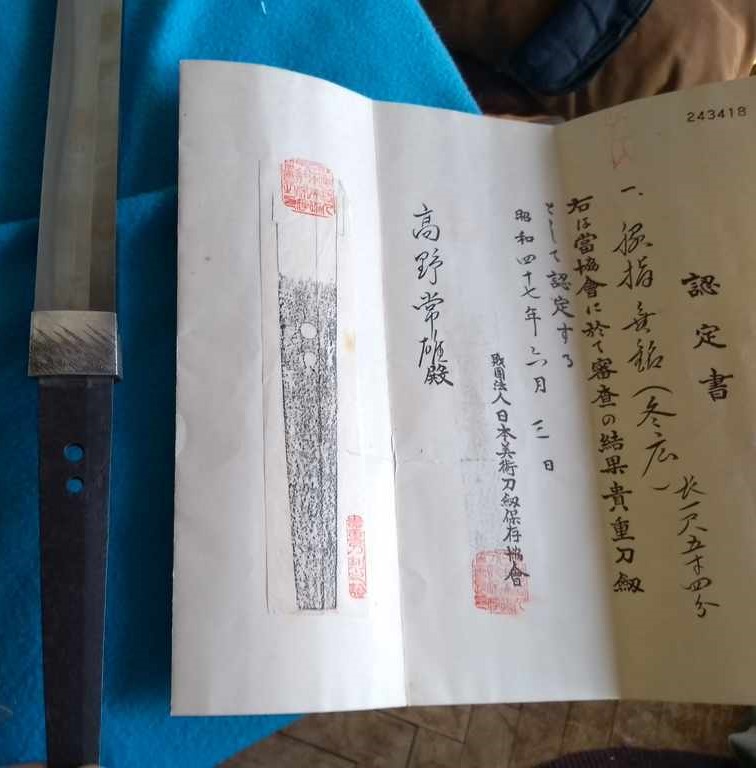 243418
認定書
一、脇指 無銘(冬広) 長一尺五寸四分
右は當協會に於て審査の結果貴重刀剣
として認定する
昭和四十七年六月三日
財團法人日本美術刀剣保存協會
高野常雄殿